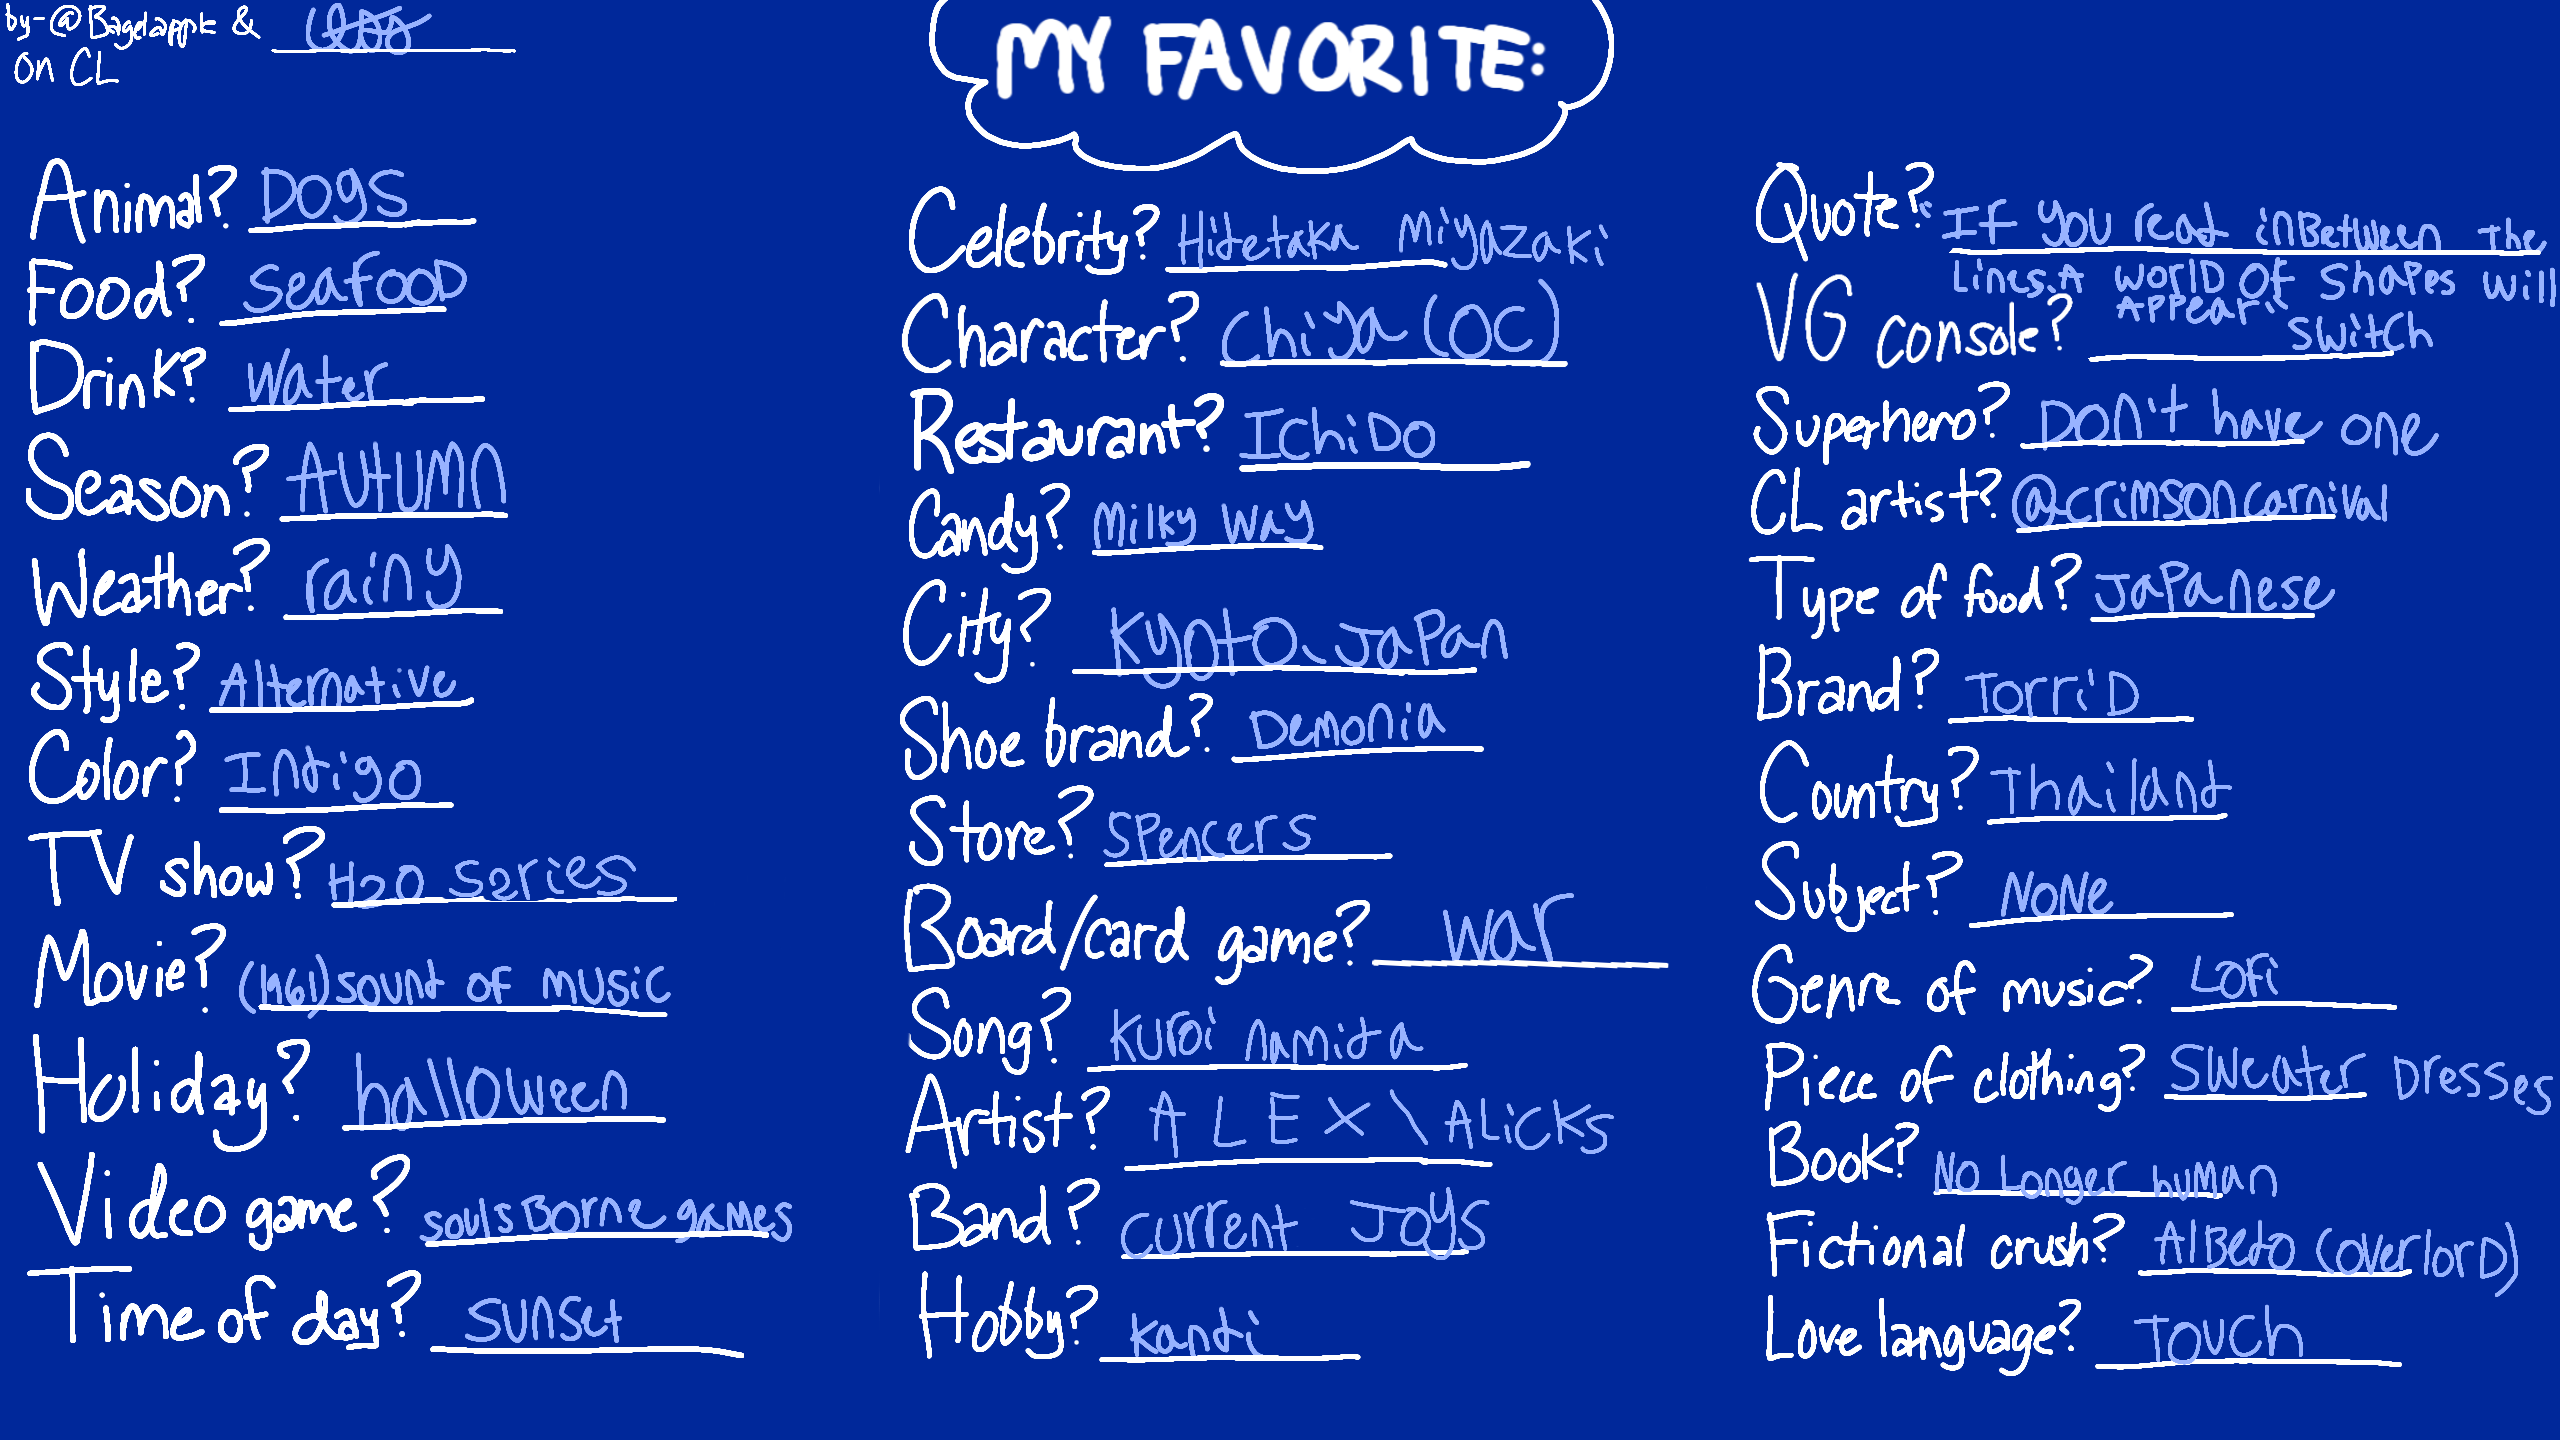 by-@Bagelapple &
on CL
MY FAVORITE:
Animal? Dogs
Food? Seafood
Drink? Water
Season? Autumn
Weather? rainy
Style? Alternative
Color? Indigo
TV show? H2O Series
Movie? (1961) sound of music
Holiday? halloween
Video game? soulsBorne games
Time of day? sunset
Celebrity? Hidetaka Miyazaki
Character? Chiya (OC)
Restaurant? IchiDo
Candy? Milky Way
City? Kyoto, Japan
Shoe brand? Demonia
Store? Spencers
Board/card game? War
Song? Kuroi namida
Artist? A L E X \ ALiCKS
Band? current Joys
Hobby? Kandi
Quote? "If you read inBetween The
Lines. A world of shapes will
Appear."
VG console? Switch
Superhero? Don't have one
CL artist? @crimsoncarnival
Type of food? Japanese
Brand? TorriD
Country? Thailand
Subject? None
Genre of music? Lofi
Piece of clothing? Sweater Dresses
Book? No Longer human
Fictional crush? AlBedo (overlord)
Love language? Touch